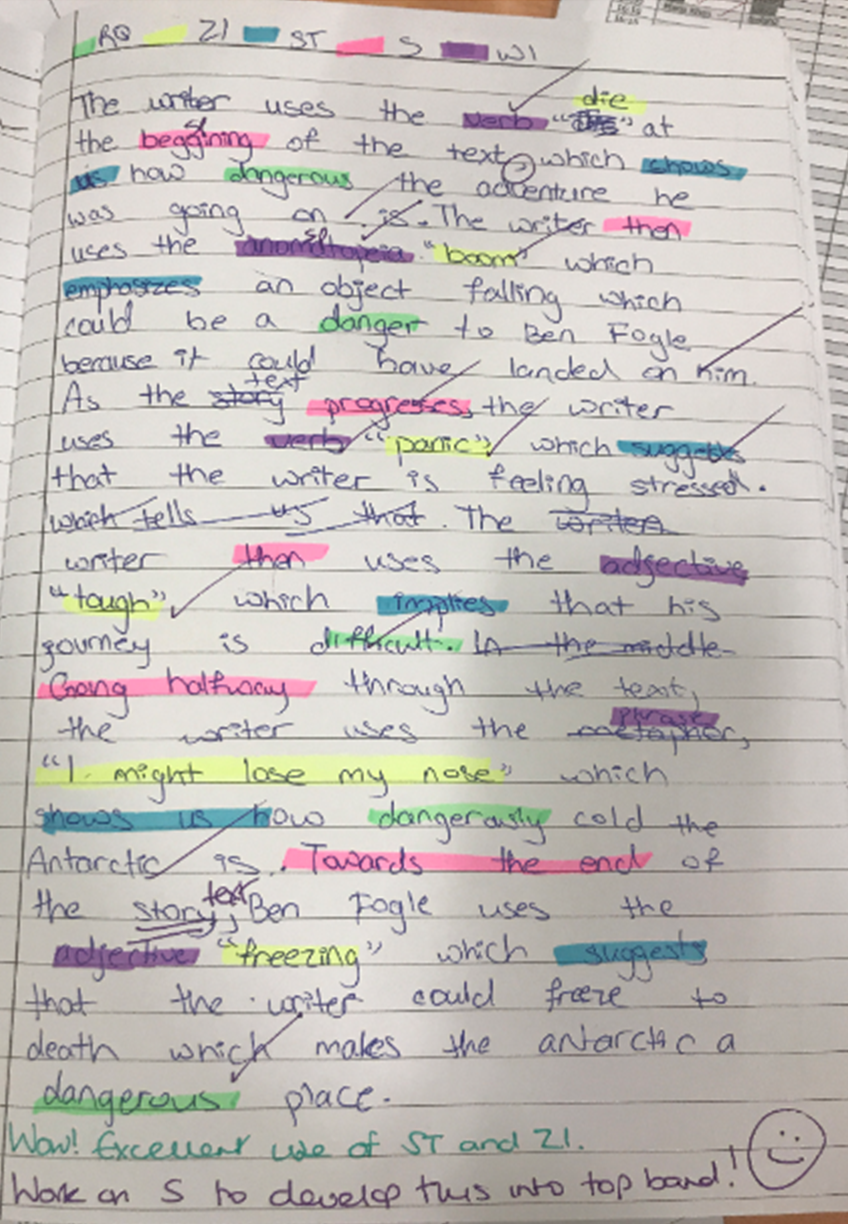 RQ ZI ST S WI
The writer uses the verb "die" at
the beggining of the text, which shows
us how dangerous the adventure he
was going on is. The writer then
uses the anomatopeia "boom" which
emphasizes an object falling which
could be a danger to Ben Fogle
because it could have landed on him.
As the story text progresses, the writer
uses the verb "panic", which suggests
that the writer is feeling stressed.
which tells us that. The writer
writer then uses the adjective
"tough", which implies that his
journey is difficult. In the middle
Going halfway through the text,
the writer uses the metaphor, phrase
"I might lose my nose" which
shows us how dangerously cold the
Antarctic is. Towards the end of
the story, text Ben Fogle uses the
adjective "freezing" which suggests
that the writer could freeze to
death which makes the antarctic a
dangerous place.
Wow! Excellent use of ST and ZI.
Work on S to develop this into top band!